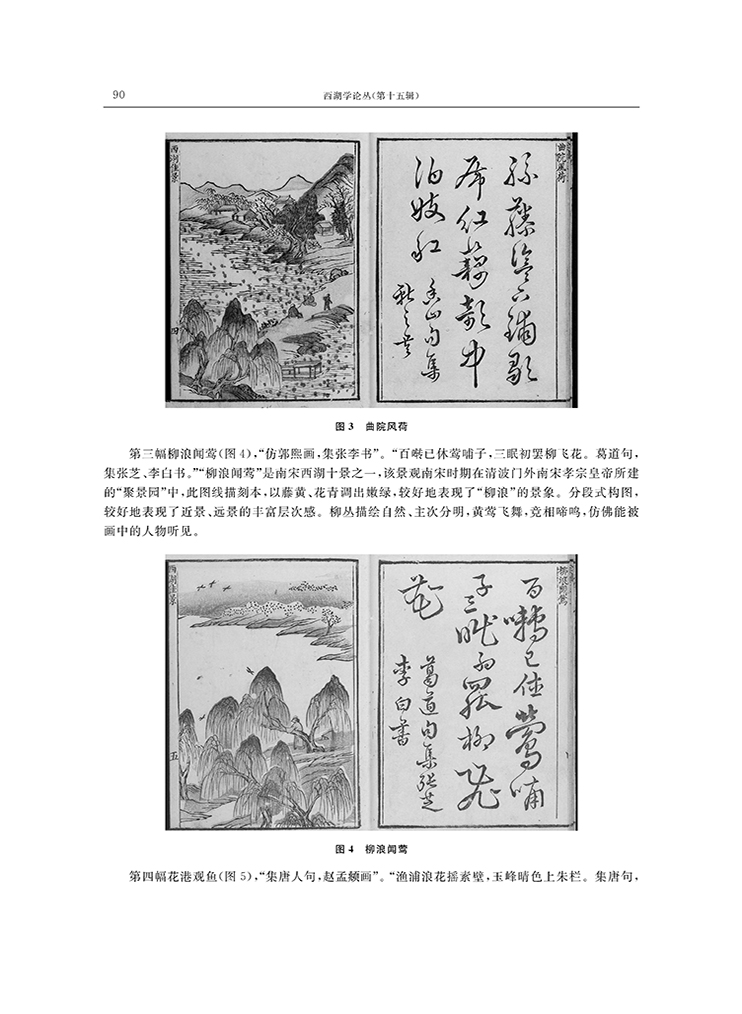 90
西湖学论丛(第十五辑)
曲院風荷
綠藤陰下鋪歌
席紅藕花中
泊妓舡
香山句集
羲之書
西湖佳景
四
图 3 曲院风荷
第三幅柳浪闻莺(图 4),“仿郭熙画,集张李书”。“百啭已休莺哺子,三眠初罢柳飞花。葛道句,
集张芝、李白书。”“柳浪闻莺”是南宋西湖十景之一,该景观南宋时期在清波门外南宋孝宗皇帝所建
的“聚景园”中,此图线描刻本,以藤黄、花青调出嫩绿,较好地表现了“柳浪”的景象。分段式构图,
较好地表现了近景、远景的丰富层次感。柳丛描绘自然、主次分明,黄莺飞舞,竞相啼鸣,仿佛能被
画中的人物听见。
柳浪聞鶯
百囀已住鶯哺
子三眠初罷柳飛
花
葛道句集張芝
李白書
西湖佳景
五
图 4 柳浪闻莺
第四幅花港观鱼(图 5),“集唐人句,赵孟頫画”。“渔浦浪花摇素壁,玉峰晴色上朱栏。集唐句,